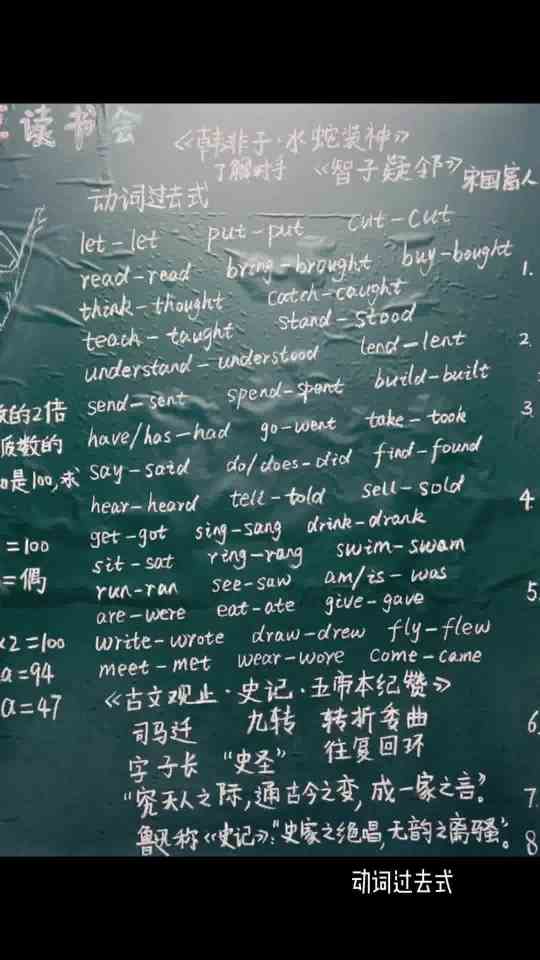 读书会
《韩非子·水蛇装神》
了解对手 《智子疑邻》 宋国富人
动词过去式
let-let put-put cut-cut
read-read bring-brought buy-bought
think-thought catch-caught
teach-taught stand-stood
understand-understood lend-lent
send-sent spend-spent build-built
have/has-had go-went take-took
say-said do/does-did find-found
hear-heard tell-told sell-sold
get-got sing-sang drink-drank
sit-sat ring-rang swim-swam
run-ran see-saw am/is-was
are-were eat-ate give-gave
write-wrote draw-drew fly-flew
meet-met wear-wore come-came
《古文观止·史记·五帝本纪赞》
司马迁 九转 转折委曲
字子长 "史圣" 往复回环
"究天人之际,通古今之变,成一家之言。"
鲁迅称《史记》:"史家之绝唱,无韵之离骚"。
的2倍
质数的
是100,求
=100
=偶
×2=100
a=94
a=47
1.
2.
3.
4.
5.
6.
7.
8
动词过去式